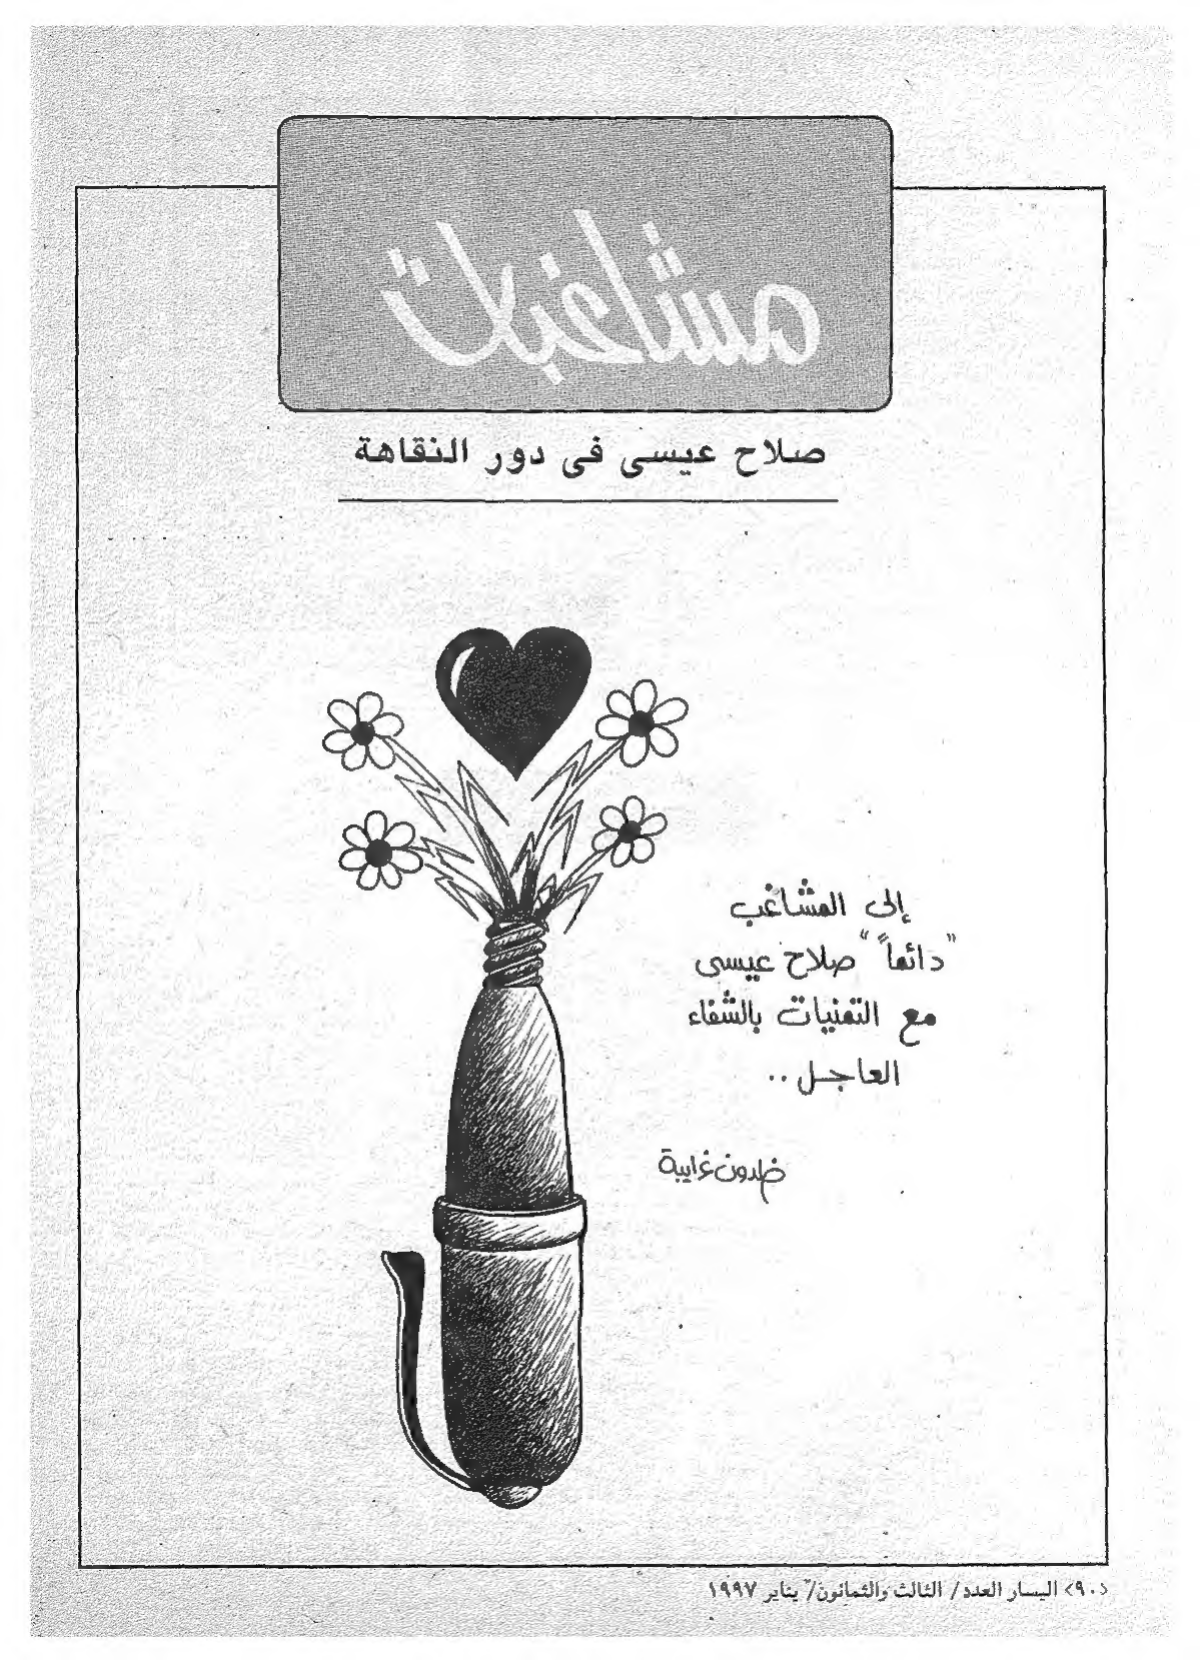 مشاغبات
صلاح عيسى فى دور النقاهة
إلى المشاغب
"دائماً" صلاح عيسى
مع التمنيات بالشفاء
العاجل..
خلدون غرايبة
<٩٠> اليسار العدد/ الثالث والثمانون/ يناير ١٩٩٧